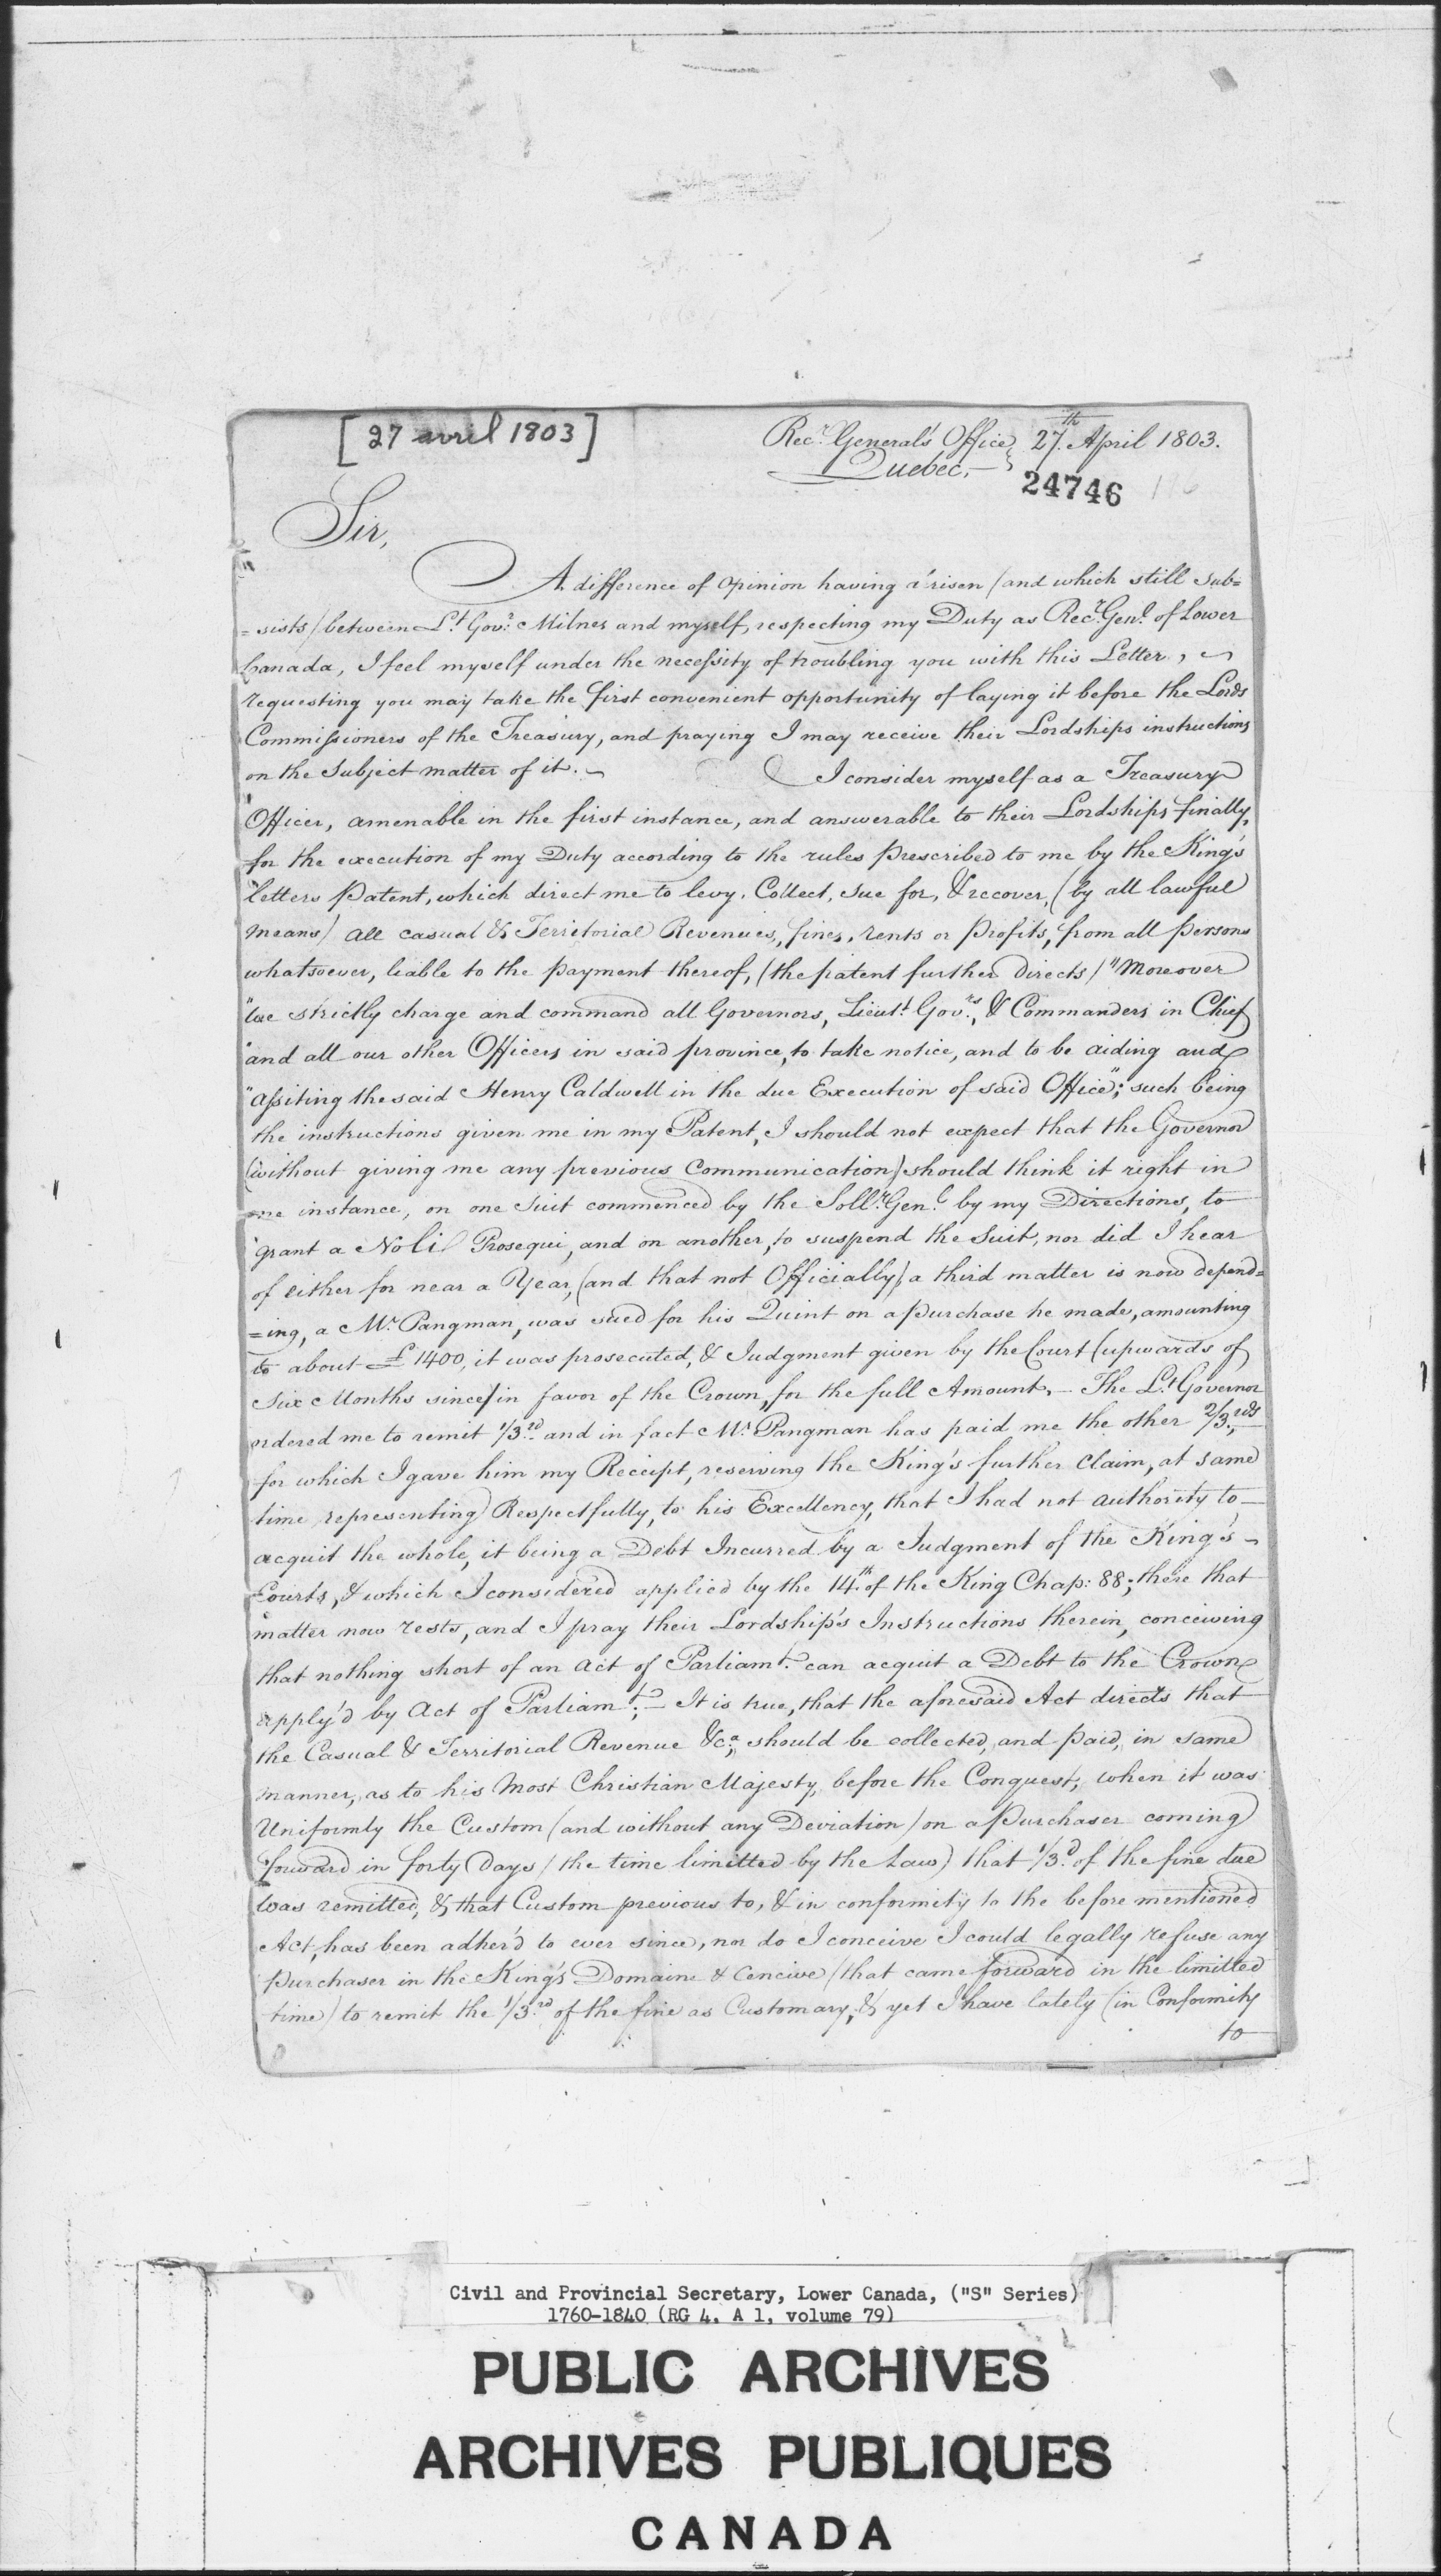 [27 avril 1803]
Recr. General's Office 27th. April 1803.
Quebec.
24746
Sir,
A difference of Opinion having a'risen (and which still sub=
=sists) between Lt. Govr. Milnes and myself, respecting my Duty as Recr. Genl. of Lower
Canada, I feel myself under the necessity of troubling you with this Letter,
requesting you may take the first convenient opportunity of laying it before the Lords
Commissioners of the Treasury, and praying I may receive their Lordships instructions
on the Subject matter of it. I consider myself as a Treasury
Officer, amenable in the first instance, and answerable to their Lordships finally,
for the execution of my Duty according to the rules prescribed to me by the King's
letters Patent, which direct me to levy, Collect, sue for, & recover, (by all lawful
means) all casual & Territorial Revenues, fines, rents or Profits, from all persons
whatsoever, liable to the payment thereof, (the patent further directs) "Moreover
"we strictly charge and command all Governors, Lieut. Govrs., & Commanders in Chief
"and all our other Officers in said province, to take notice, and to be aiding and
"assiting the said Henry Caldwell in the due Execution of said Office"; such being
the instructions given me in my Patent, I should not expect that the Governor
(without giving me any previous Communication) should think it right in
one instance, on one Suit commenced by the Sollr. Genl. by my Directions, to
grant a Noli Prosequi, and on another, to suspend the Suit, nor did I hear
of either for near a Year, (and that not Officially) a third matter is now depend=
=ing, a Mr. Pangman, was sued for his Quint on a purchase he made, amounting
to about £1400, it was prosecuted, & Judgment given by the Court (upwards of
Six Months since) in favor of the Crown, for the full Amount, - The Lt. Governor
ordered me to remit 1/3rd. and in fact Mr. Pangman has paid me the other 2/3rds.,
for which I gave him my Receipt, reserving the King's further Claim, at same
time representing Respectfully, to his Excellency, that I had not authority to
acquit the whole, it being a Debt Incurred by a Judgment of the King's
Courts, & which I considered applied by the 14th. of the King Chap: 88; there that
matter now rests, and I pray their Lordship's Instructions therein, conceiving
that nothing short of an Act of Parliamt. can acquit a Debt to the Crown
apply'd by Act of Parliamt.; - It is true, that the aforesaid Act directs that
the Casual & Territorial Revenue &ca., should be collected, and paid, in same
manner, as to his Most Christian Majesty, before the Conquest, when it was
Uniformly the Custom (and without any Deviation) on a Purchaser coming
forward in forty Days (the time limitted by the Law) that 1/3d. of the fine due
was remitted, & that Custom previous to, & in conformity to the before mentioned
Act, has been adher'd to ever since, nor do I conceive I could legally refuse any
Purchaser in the King's Domaine & Cencive (that came forward in the limitted
time) to remit the 1/3rd. of the fine as Customary, & yet I have lately (in Conformity
to
Civil and Provincial Secretary, Lower Canada, ("S" Series)
1760-1840 (RG 4, A 1, volume 79)
PUBLIC ARCHIVES
ARCHIVES PUBLIQUES
CANADA